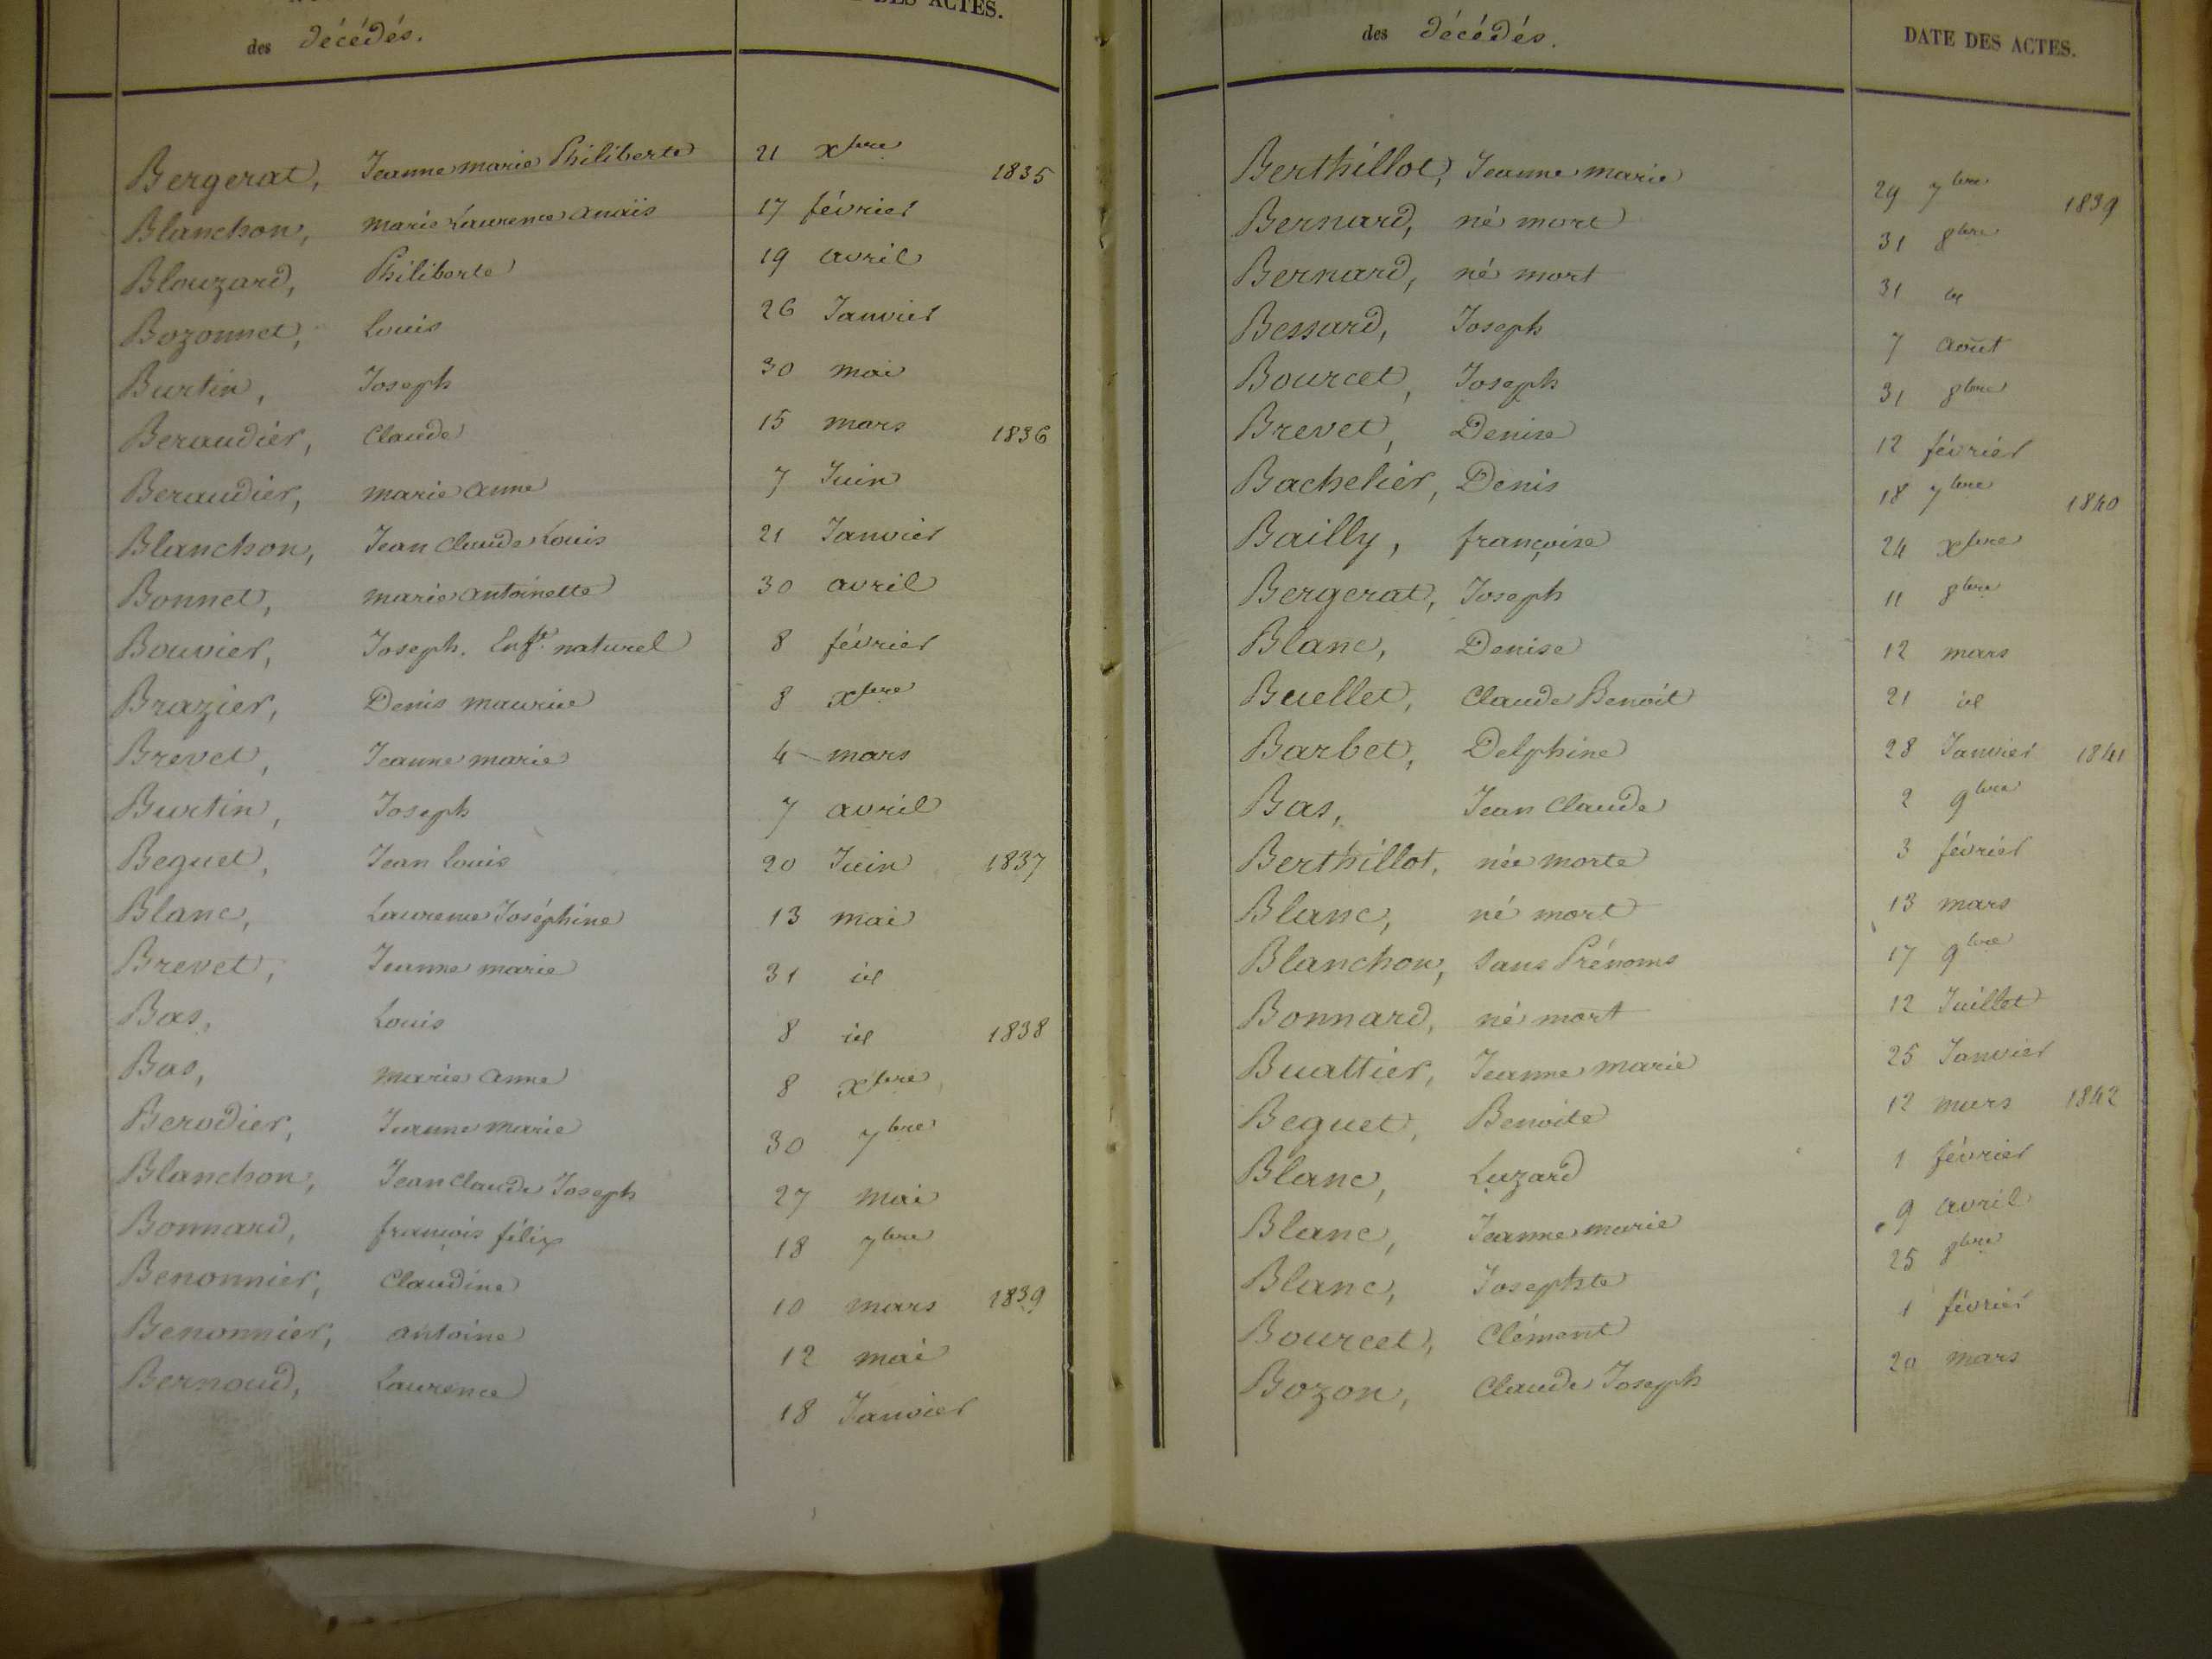 des décédés.
DES ACTES.
Bergerat, Jeanne marie Philiberte 21 Xbre 1835
Blanchon, marie Laurence anaïs 17 février
Blouzard, Philiberte 19 avril
Bozonnet, Louis 26 Janvier
Burtin, Joseph 30 mai
Beraudier, Claude 15 mars 1836
Beraudier, marie anne 7 Juin
Blanchon, Jean Claude Louis 21 Janvier
Bonnet, marie antoinette 30 avril
Bouvier, Joseph. Enft. naturel 8 février
Brazier, Denis maurice 8 Xbre
Brevet, Jeanne marie 4 mars
Burtin, Joseph 7 avril
Beguet, Jean Louis 20 Juin 1837
Blanc, Laurence Joséphine 13 mai
Brevet, Jeanne marie 31 id
Bas, Louis 8 id 1838
Bas, marie anne 8 Xbre
Berodier, Jeanne marie 30 7bre
Blanchon, Jean Claude Joseph 27 mai
Bonnard, françois félix 18 7bre
Benonnier, Claudine 10 mars 1839
Benonnier, antoine 12 mai
Bernoud, Laurence 18 Janvier
des décédés.
DATE DES ACTES.
Berthillot, Jeanne marie 29 7bre 1839
Bernard, né mort 31 8bre
Bernard, né mort 31 id
Bessard, Joseph 7 août
Bourcet, Joseph 31 8bre
Brevet, Denise 12 février
Bachelier, Denis 18 7bre 1840
Bailly, françoise 24 Xbre
Bergerat, Joseph 11 8bre
Blanc, Denise 12 mars
Buellet, Claude Benoît 21 id
Barbet, Delphine 28 Janvier 1841
Bas, Jean Claude 2 9bre
Berthillot, née morte 3 février
Blanc, né mort 13 mars
Blanchon, Sans Prénoms 17 9bre
Bonnard, né mort 12 Juillet
Buattier, Jeanne marie 25 Janvier
Beguet, Benoite 12 mars 1842
Blanc, Luzard 1 février
Blanc, Jeanne marie 9 avril
Blanc, Josephte 25 8bre
Bourcet, Clément 1 février
Bozon, Claude Joseph 20 mars